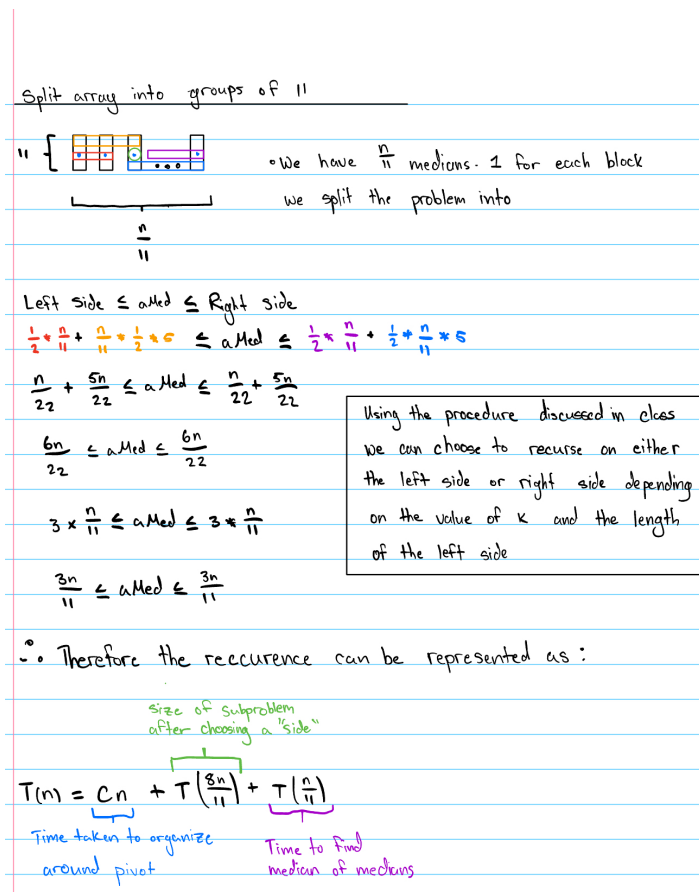 Split array into groups of 11
11 {
• We have n/11 medians. 1 for each block
we split the problem into
n/11
Left side ≤ aMed ≤ Right side
1/2 * n/11 + n/11 * 1/2 * 5 ≤ aMed ≤ 1/2 * n/11 + 1/2 * n/11 * 5
n/22 + 5n/22 ≤ aMed ≤ n/22 + 5n/22
6n/22 ≤ aMed ≤ 6n/22
3 * n/11 ≤ aMed ≤ 3 * n/11
3n/11 ≤ aMed ≤ 3n/11
Using the procedure discussed in class
we can choose to recurse on either
the left side or right side depending
on the value of K and the length
of the left side
∴ Therefore the reccurence can be represented as :
size of subproblem
after choosing a "side"
T(n) = Cn + T(8n/11) + T(n/11)
Time taken to organize
around pivot
Time to find
median of medians